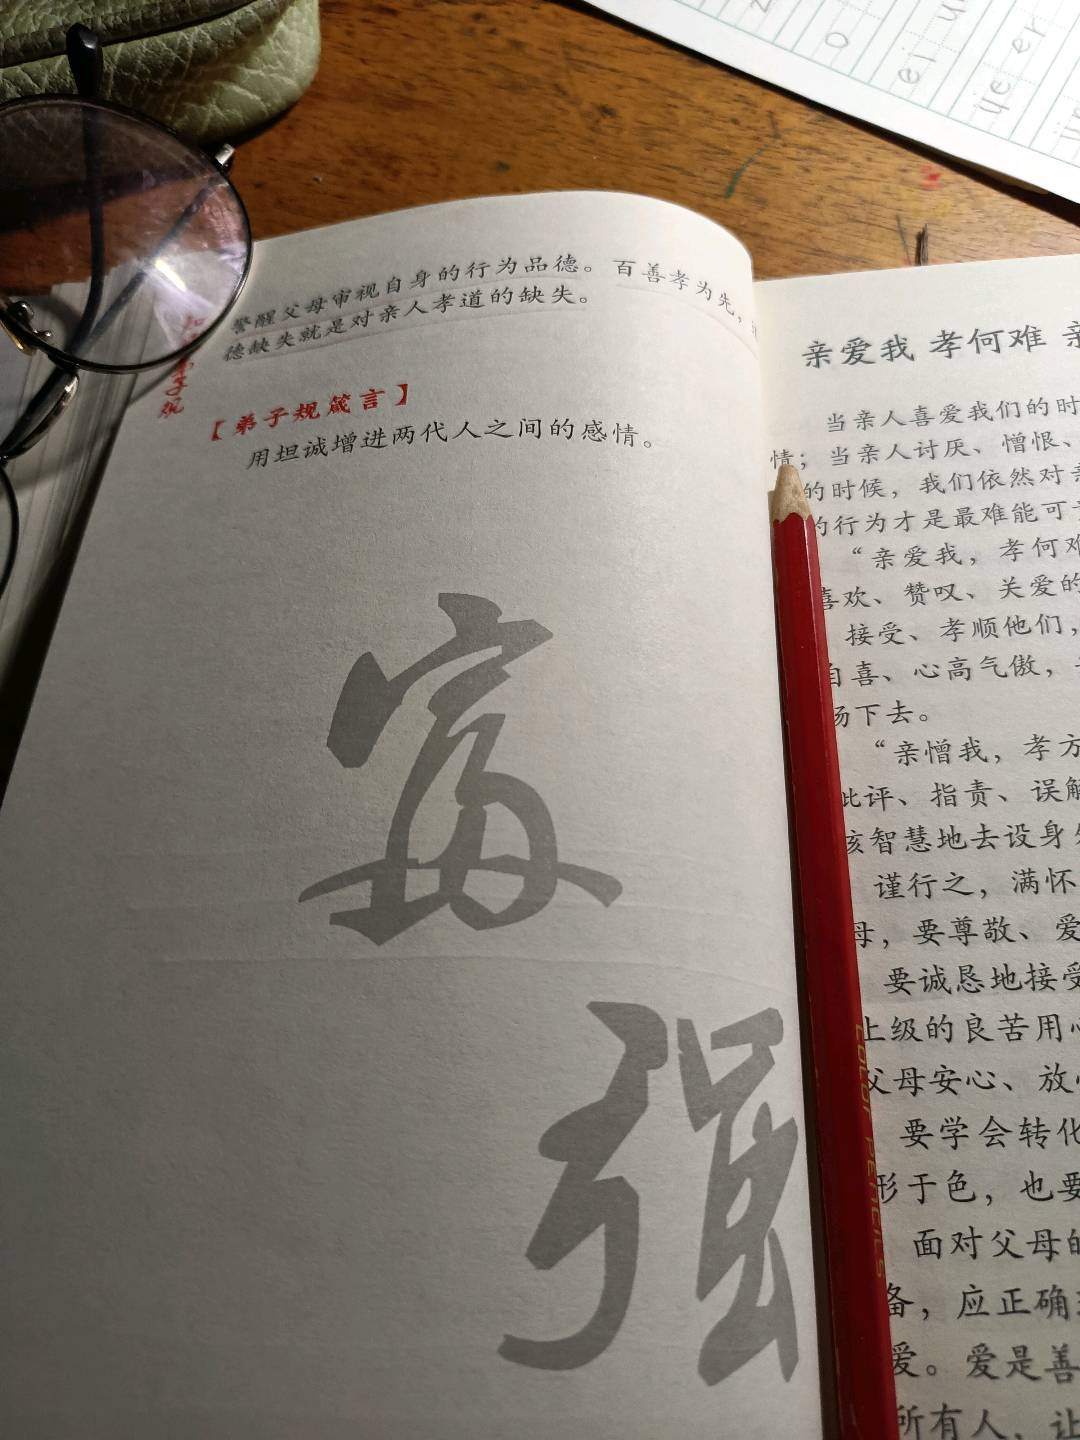 警醒父母审视自身的行为品德。百善孝为先，
德缺失就是对亲人孝道的缺失。
【弟子规箴言】
用坦诚增进两代人之间的感情。
富
强
亲爱我 孝何难 亲
当亲人喜爱我们的时
情；当亲人讨厌、憎恨、
的时候，我们依然对亲
的行为才是最难能可
“亲爱我，孝何难
喜欢、赞叹、关爱的
接受、孝顺他们，
自喜、心高气傲，
扬下去。
“亲憎我，孝方
批评、指责、误解
该智慧地去设身
谨行之，满怀
母，要尊敬、爱
要诚恳地接受
上级的良苦用心
父母安心、放心
要学会转化
形于色，也要
面对父母的
备，应正确
爱。爱是善
所有人，让
COLOR PENCILS
o
ei
ue er